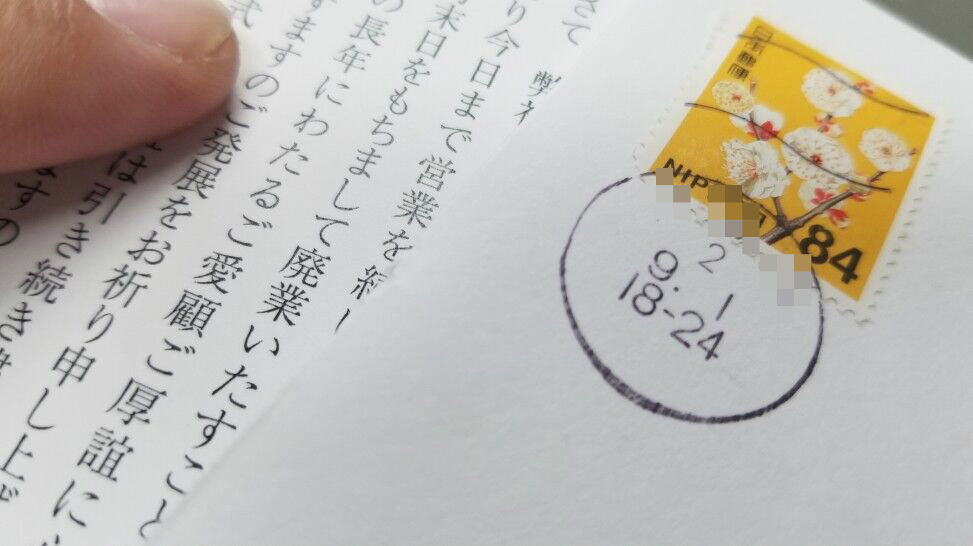 さて
弊社
り今日まで営業を続し
末日をもちまして廃業いたすこと
の長年にわたるご愛顧ご厚誼に
ますのご発展をお祈り申し上げ
は引き続き
ますの
日本郵便
NIP
84
2
9. 1
18-24